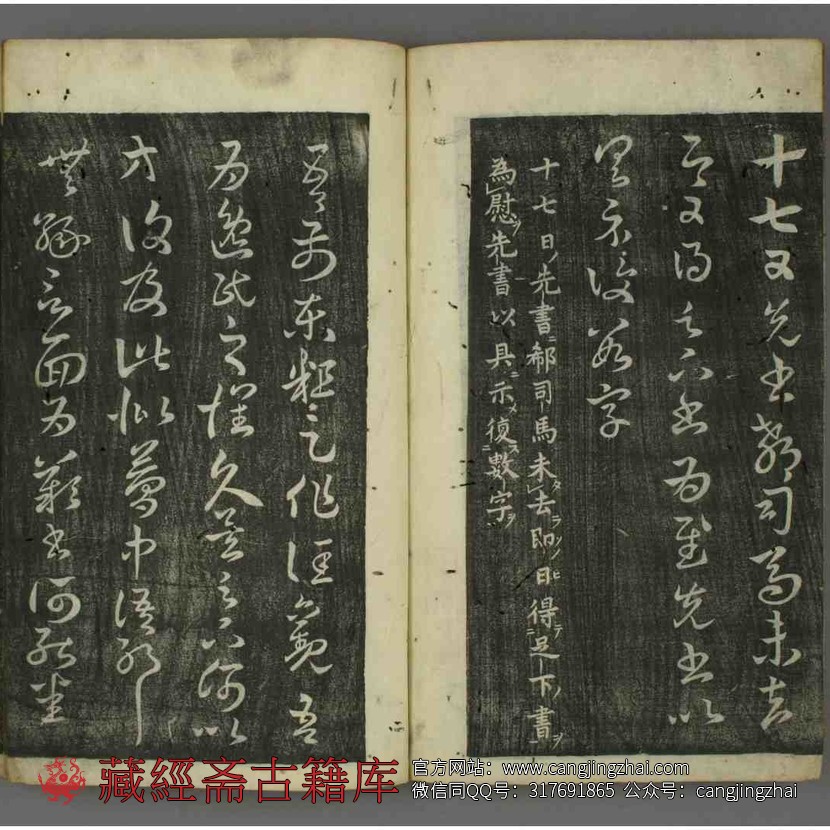 十七日先書郗司馬未去
即日得足下書為慰先書以
具示復數字
十七日先書郗司馬未去即日得足下書
為慰先書以具示復數字
吾前東粗足作佳觀吾
為逸民之懷久矣足下何以
方復及此似夢中語耶
無緣言面為歎書何能悉
藏經斋古籍库
官方网站：www.cangjingzhai.com
微信同QQ号：317691865 公众号：cangjingzhai